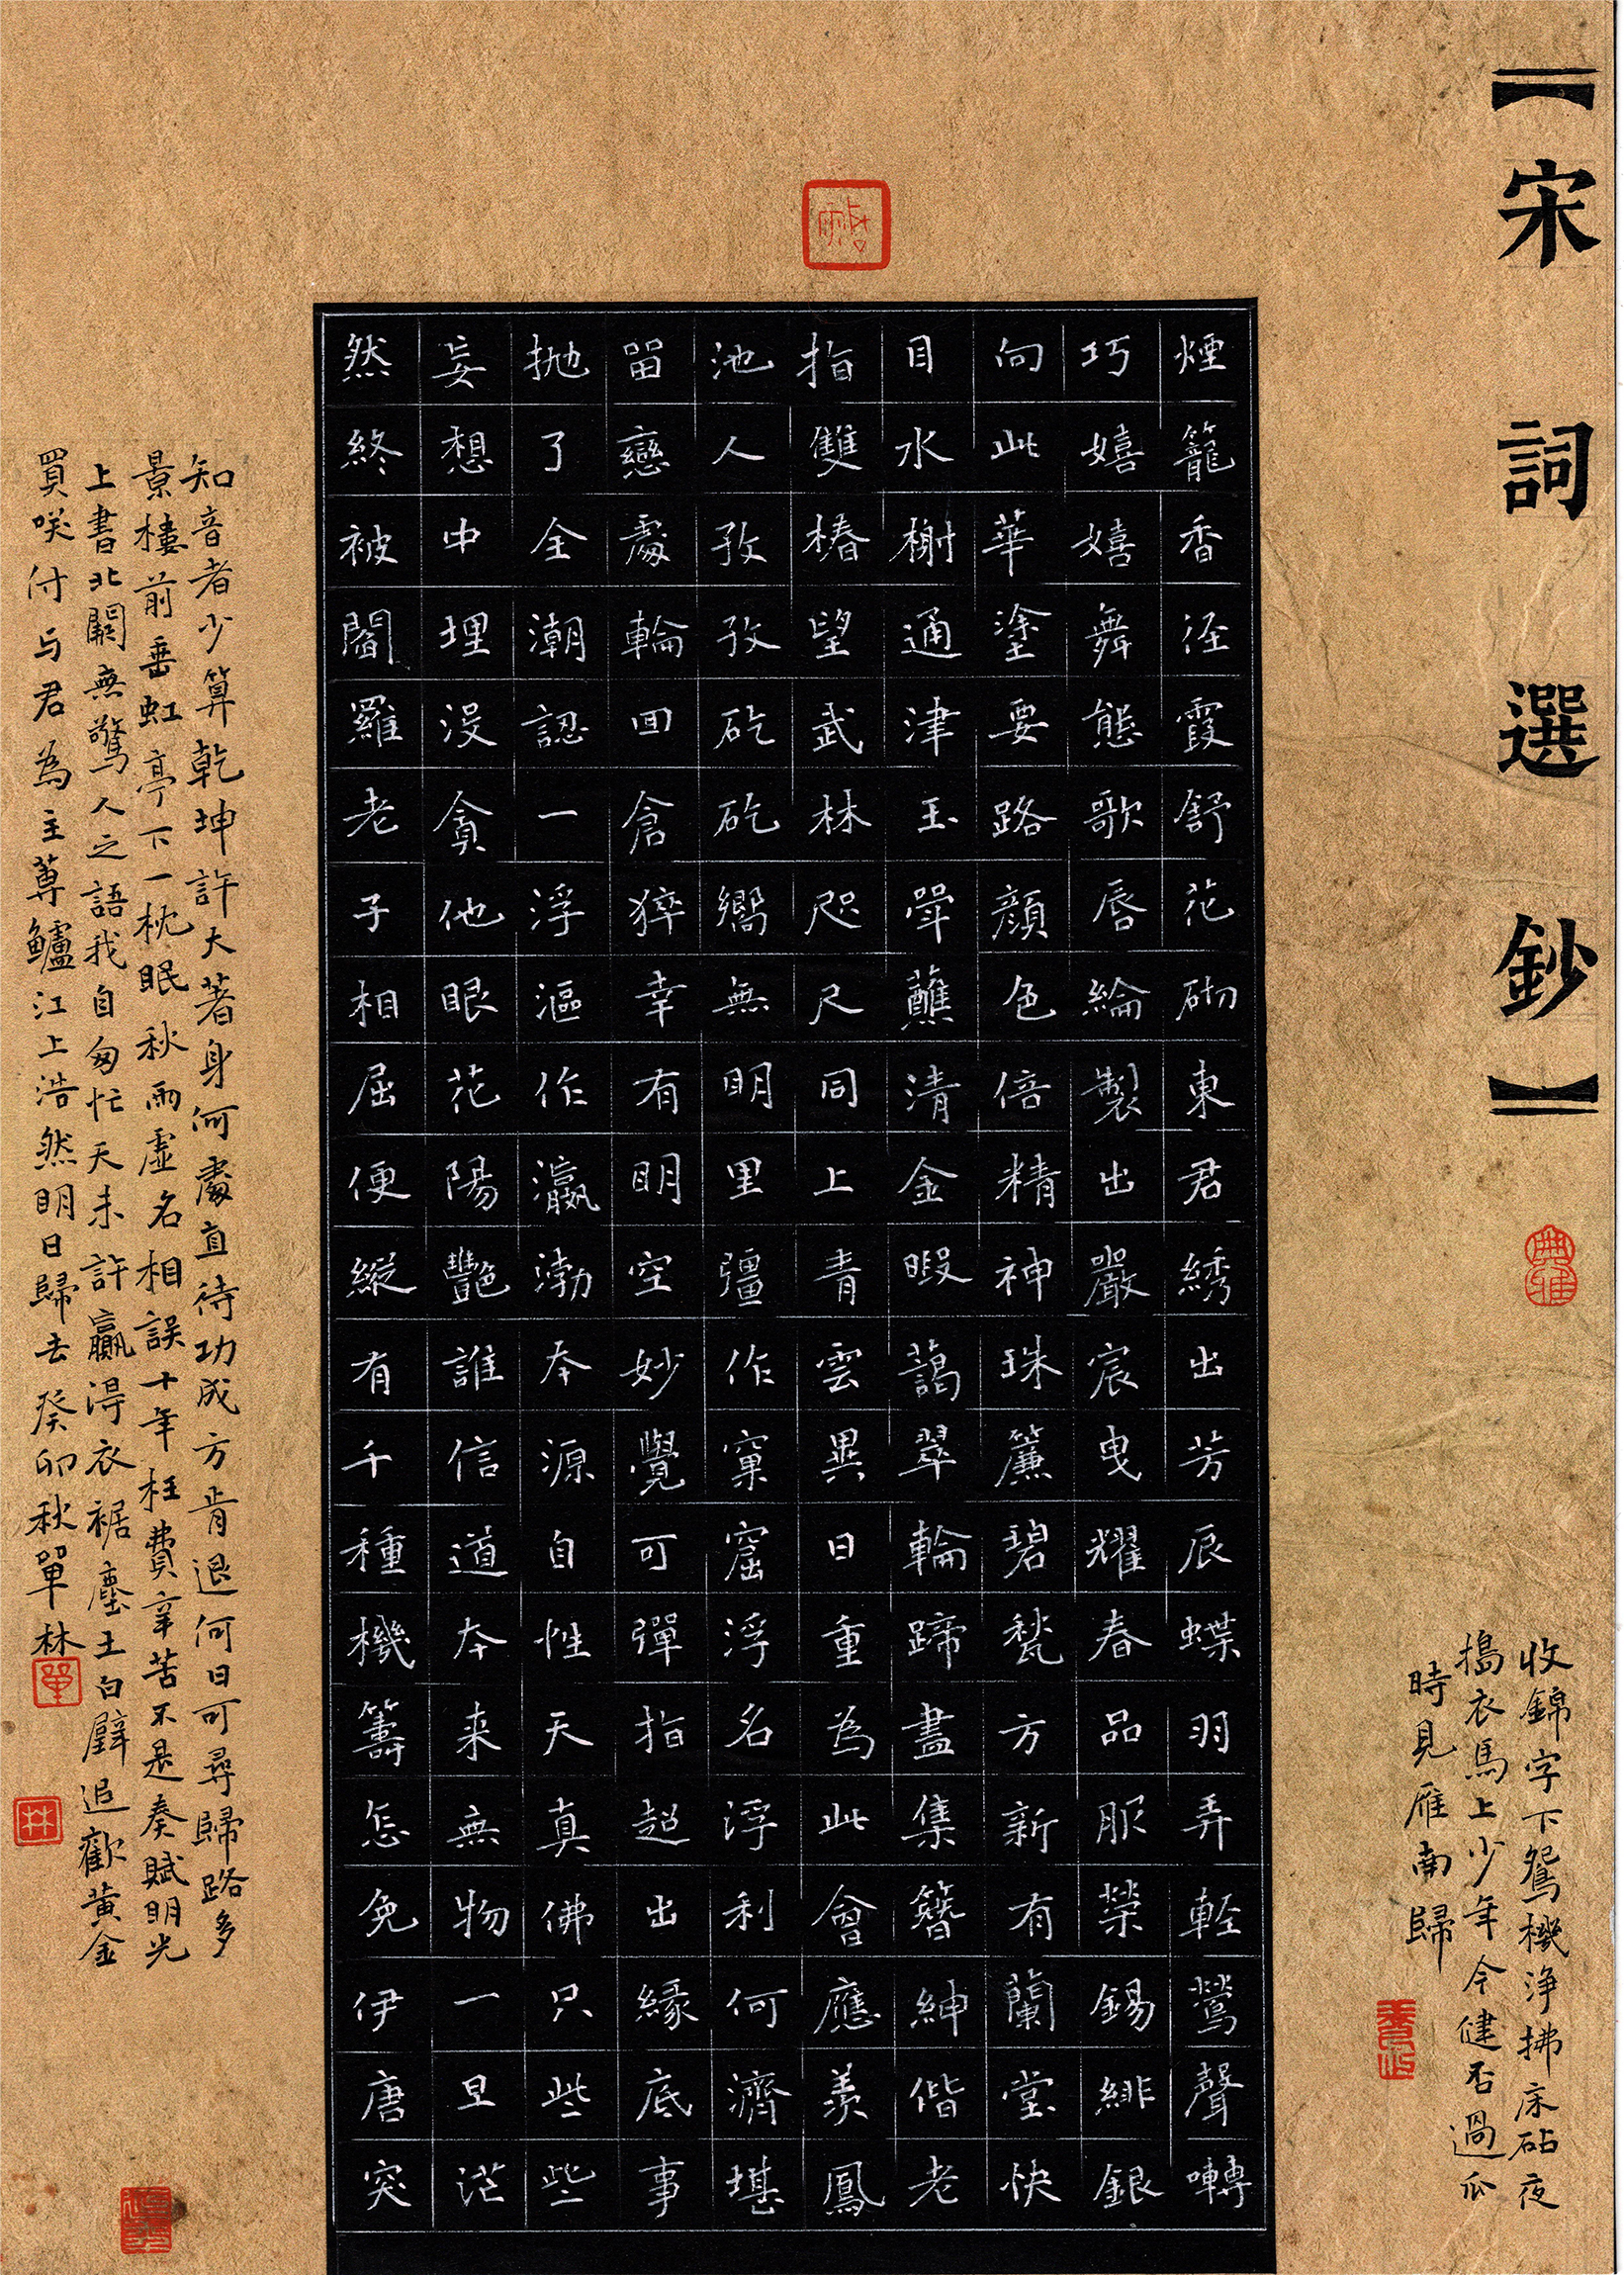 【宋詞選鈔】
收錦字下鴛機淨拂床砧夜
擣衣馬上少年今健否過瓜
時見雁南歸
煙籠香徑霞舒花砌東君綉出芳辰蝶羽弄輕鶯聲囀
巧嬉嬉舞態歌唇綸製出嚴宸曳耀春品服榮錫緋銀
向此華塗要路顏色倍精神珠簾碧甃方新有蘭堂快
目水榭通津玉斝蘸清金暇藹翠輪蹄盡集簪紳偕老
指雙椿望武林咫尺同上青雲異日重為此會應羨鳳
池人孜孜矻矻嚮無明里彊作窠窟浮名浮利何濟堪
留戀處輪回倉猝幸有明空妙覺可彈指超出緣底事
抛了全潮認一浮漚作瀛渤本源自性天真佛只些些
妄想中埋没貪他眼花陽豔誰信道本来無物一旦茫
然終被閻羅老子相屈便縱有千種機籌怎免伊唐突
知音者少算乾坤許大著身何處直待功成方肯退何日可尋歸路多
景樓前垂虹亭下一枕眠秋雨虛名相誤十年枉費辛苦不是奏賦明光
上書北闕無驚人之語我自匆忙天未許贏得衣裾塵土白璧追歡黃金
買咲付与君為主蓴鱸江上浩然明日歸去癸卯秋單林
單
林